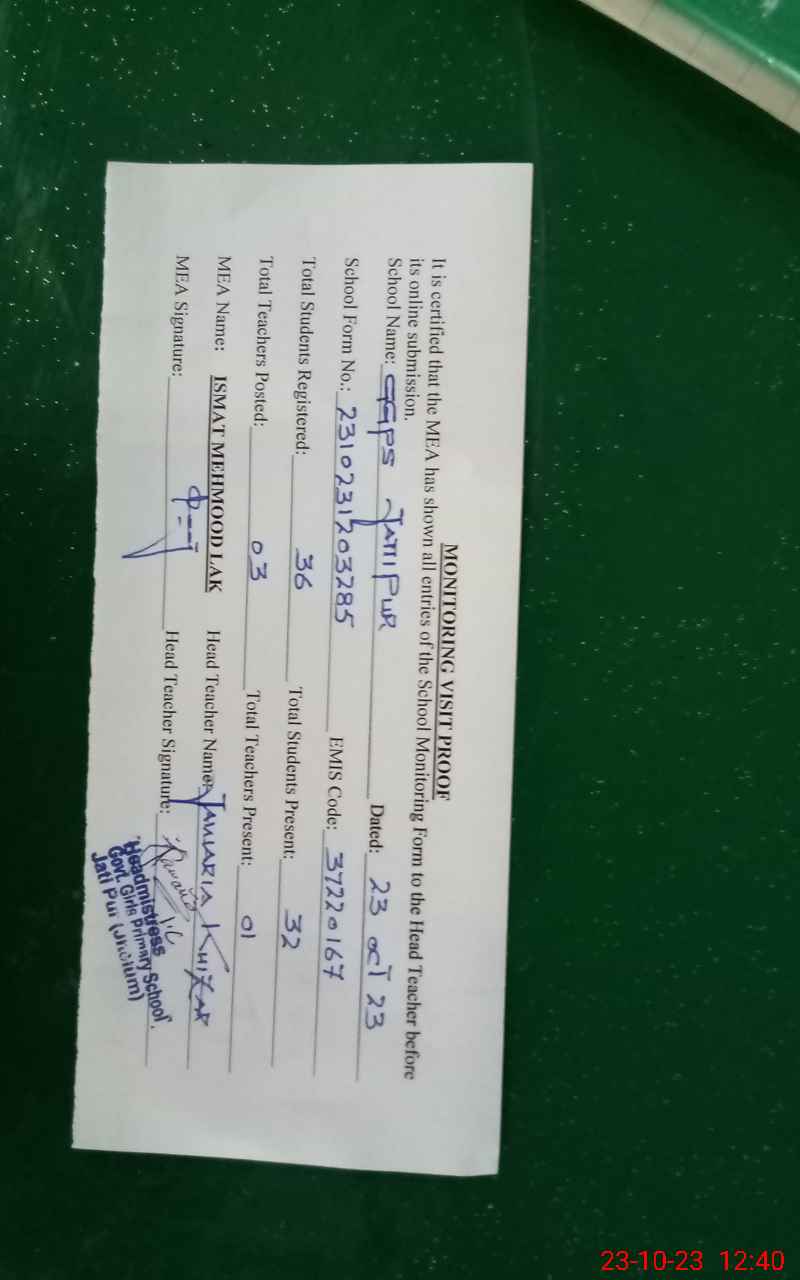 MONITORING VISIT PROOF
It is certified that the MEA has shown all entries of the School Monitoring Form to the Head Teacher before
its online submission.
School Name: GGPS JATIPUR Dated: 23 OCT 23
School Form No.: 2310231203285 EMIS Code: 37220167
Total Students Registered: 36 Total Students Present: 32
Total Teachers Posted: 03 Total Teachers Present: 01
MEA Name: ISMAT MEHMOOD LAK Head Teacher Name: JAWARIA KHIZAR
MEA Signature: Head Teacher Signature:
Headmistress
Govt. Girls Primary School.
Jati Pur (Jhelum)
23-10-23 12:40